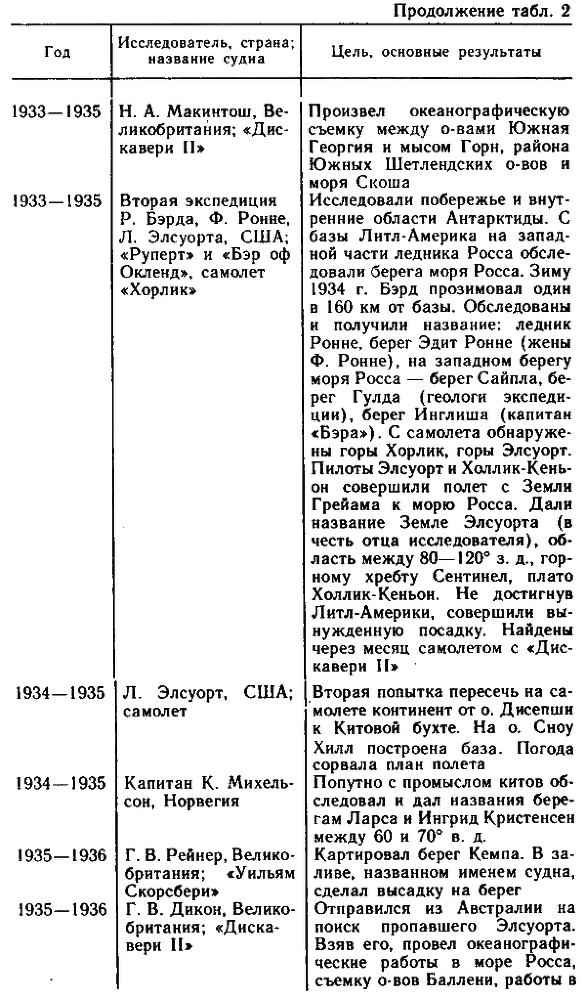 Продолжение табл. 2
Год
Исследователь, страна;
название судна
Цель, основные результаты
1933—1935
Н. А. Макинтош, Ве-
ликобритания; «Дис-
кавери II»
Произвел океанографическую
съемку между о-вами Южная
Георгия и мысом Горн, района
Южных Шетлендских о-вов и
моря Скоша
1933—1935
Вторая экспедиция
Р. Бэрда, Ф. Ронне,
Л. Элсуорта, США;
«Руперт» и «Бэр оф
Окленд», самолет
«Хорлик»
Исследовали побережье и внут-
ренние области Антарктиды. С
базы Литл-Америка на запад-
ной части ледника Росса обсле-
довали берега моря Росса. Зиму
1934 г. Бэрд прозимовал один
в 160 км от базы. Обследованы
и получили название: ледник
Ронне, берег Эдит Ронне (жены
Ф. Ронне), на западном берегу
моря Росса — берег Сайпла, бе-
рег Гулда (геологи экспеди-
ции), берег Инглиша (капитан
«Бэра»). С самолета обнаруже-
ны горы Хорлик, горы Элсуорт.
Пилоты Элсуорт и Холлик-Кень-
он совершили полет с Земли
Грейама к морю Росса. Дали
название Земле Элсуорта (в
честь отца исследователя), об-
ласть между 80—120° з. д., гор-
ному хребту Сентинел, плато
Холлик-Кеньон. Не достигнув
Литл-Америки, совершили вы-
нужденную посадку. Найдены
через месяц самолетом с «Дис-
кавери II»
1934—1935
Л. Элсуорт, США;
самолет
Вторая попытка пересечь на са-
молете континент от о. Дисепшн
к Китовой бухте. На о. Сноу
Хилл построена база. Погода
сорвала план полета
1934—1935
Капитан К. Михель-
сон, Норвегия
Попутно с промыслом китов об-
следовал и дал названия бере-
гам Ларса и Ингрид Кристенсен
между 60 и 70° в. д.
1935—1936
Г. В. Рейнер, Велико-
британия; «Уильям
Скорсбери»
Картировал берег Кемпа. В за-
ливе, названном именем судна,
сделал высадку на берег
1935—1936
Г. В. Дикон, Велико-
британия; «Диска-
вери II»
Отправился из Австралии на
поиск пропавшего Элсуорта.
Взяв его, провел океанографи-
ческие работы в море Росса,
съемку о-вов Баллени, работы в